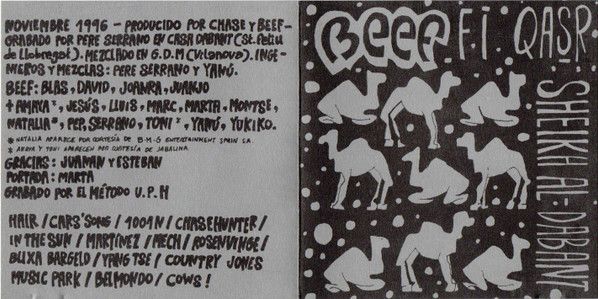 NOVIEMBRE 1996 - PRODUCIDO POR CHASE Y BEEF-
GRABADO POR PERE SERRANO EN CASA DABANT (St. Feliu
de Llobregat). MEZCLADO EN G.D.M (Vilanova). INGE-
NIEROS Y MEZCLAS: PERE SERRANO Y YANÚ.
BEEF: BLAS, DAVID, JOANRA, JUANJO
+ AMAYA*, JESÚS, LLUIS, MARC, MARTA, MONTSE,
NATALIA*, PEP, SERRANO, TONI*, YANÚ, YUKIKO.
* NATALIA APARECE POR CORTESÍA DE B-M-G ENTERTAINMENT SPAIN SA.
* AMAYA Y TONI APARECEN POR CORTESÍA DE JABALINA.
GRACIAS: JUANAN Y ESTEBAN
PORTADA: MARTA
GRABADO POR EL MÉTODO U.P.H
HAIR / CARS' SONG / 1001N / CHASEHUNTER /
IN THE SUN / MARTÍNEZ / MECH / ROSENVINGE /
BLIXA BARGELD / YANG TSE / COUNTRY JONES
MUSIC PARK / BELMONDO / COWS!
BEEF FI QASR
SHEIKH AL-DABANT